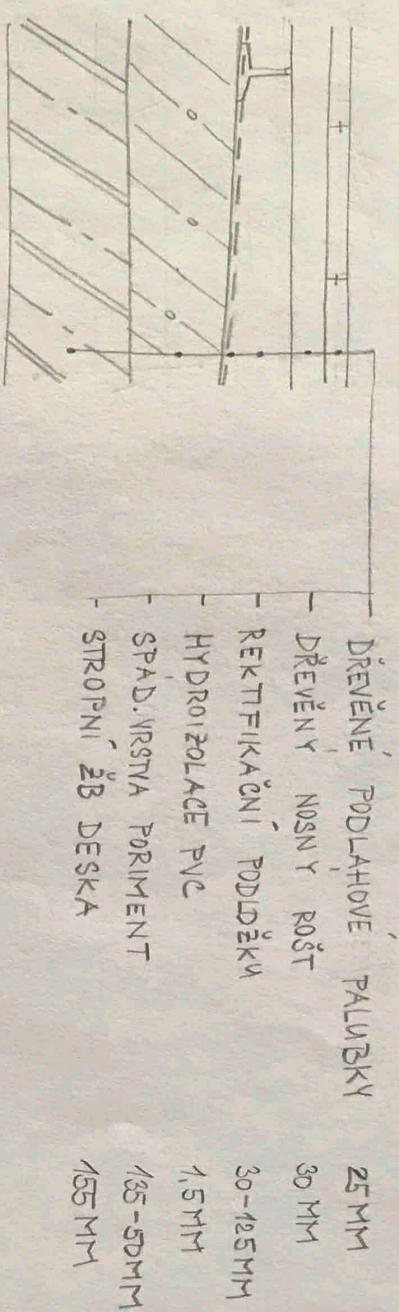 DŘEVĚNÉ PODLÁHOVÉ PALUBKY 25 MM
- DŘEVĚNÝ NOSNÝ ROŠT 30 MM
- REKTIFIKAČNÍ PODLOŽKY 30-125MM
- HYDROIZOLACE PVC 1,5MM
- SPÁD. VRSTVA PORIMENT 135-50MM
- STROPNÍ ŽB DESKA 155MM